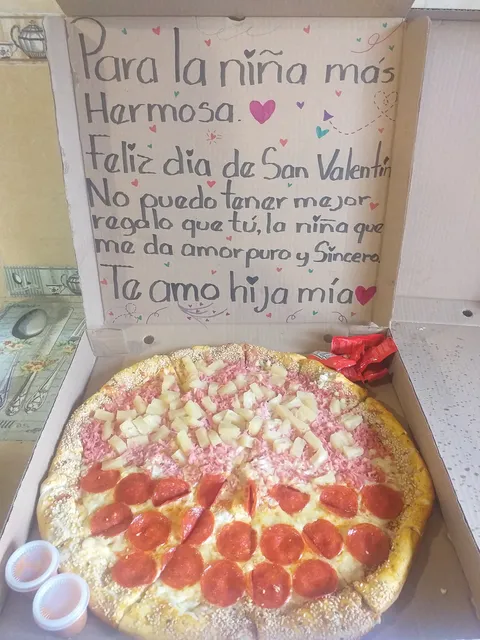 Para la niña más
Hermosa.
Feliz dia de San Valentin
No puedo tener mejor
regalo que tú, la niña que
me da amor puro y Sincero.
Te amo hija mía